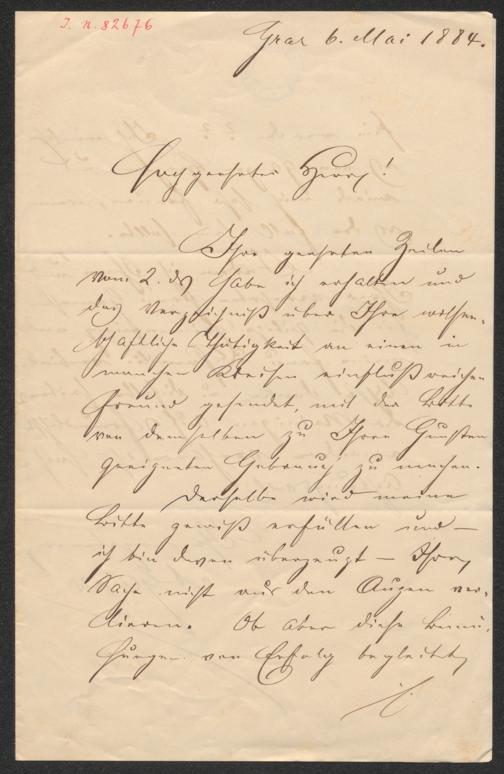 I. N. 82676
Graz 6. Mai 1884.
Hochgeehrter Herr!
Ihre geehrten Zeilen
vom 2. ds habe ich erhalten und
das Verzeichniß über Ihre wissen-
schaftliche Thätigkeit an einen in
manchen Kreisen einflußreichen
Freund gesendet, mit der Bitte
von demselben zu Ihren Gunsten
geeigneten Gebrauch zu machen.
Derselbe wird meine
Bitte gewiß erfüllen und –
ich bin davon überzeugt – Ihre
Sache nicht aus den Augen ver-
lieren. Ob aber diese Bemü-
hungen von Erfolg begleitet